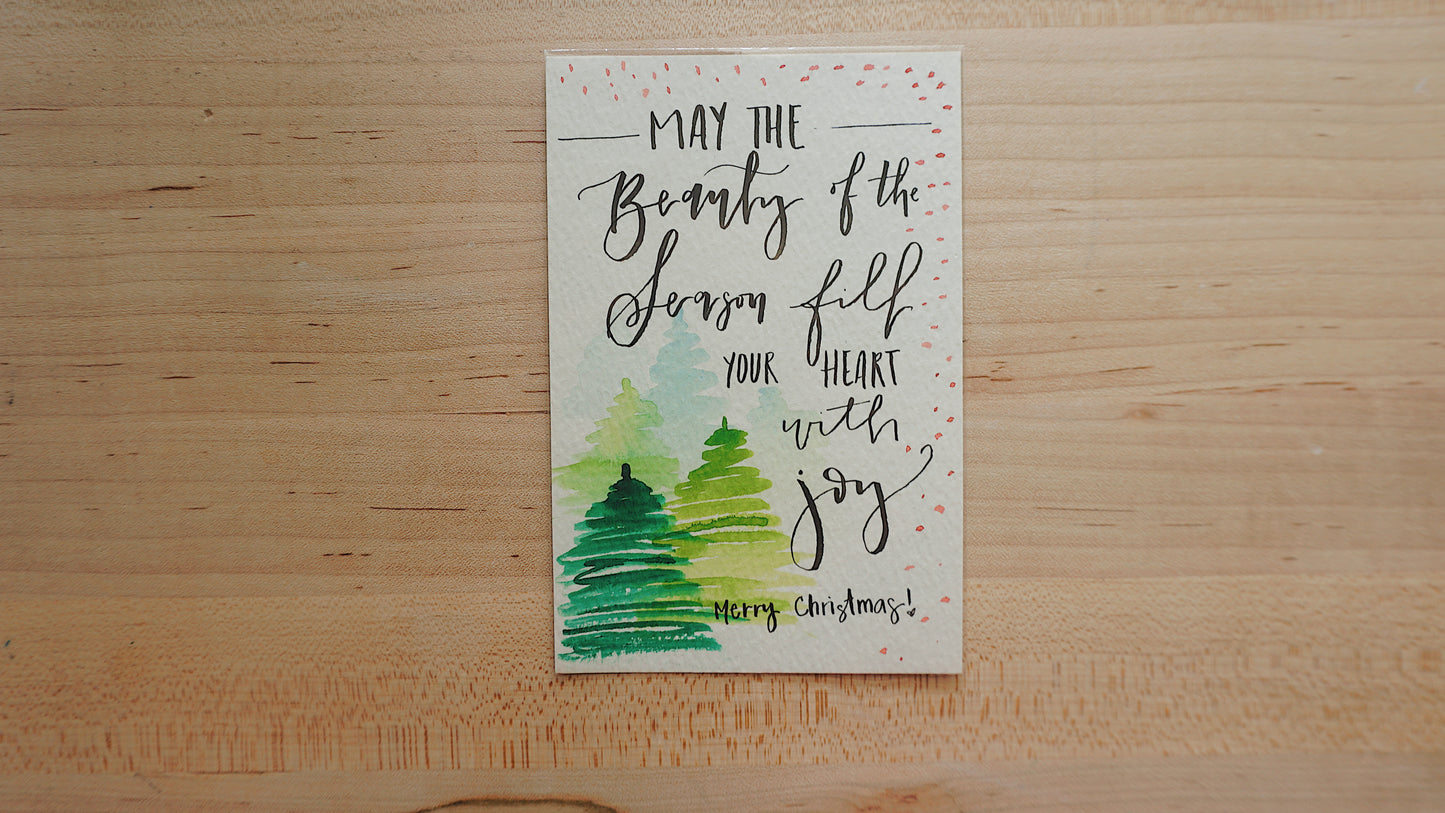 MAY THE
Beauty of the
Season fill
YOUR HEART
with
joy
Merry Christmas!